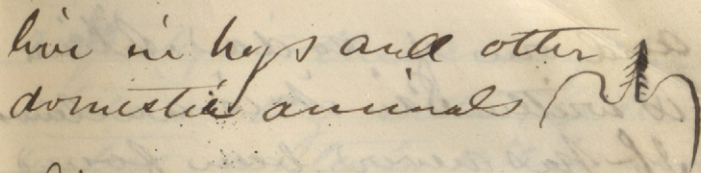 live in hogs and other
domestic animals